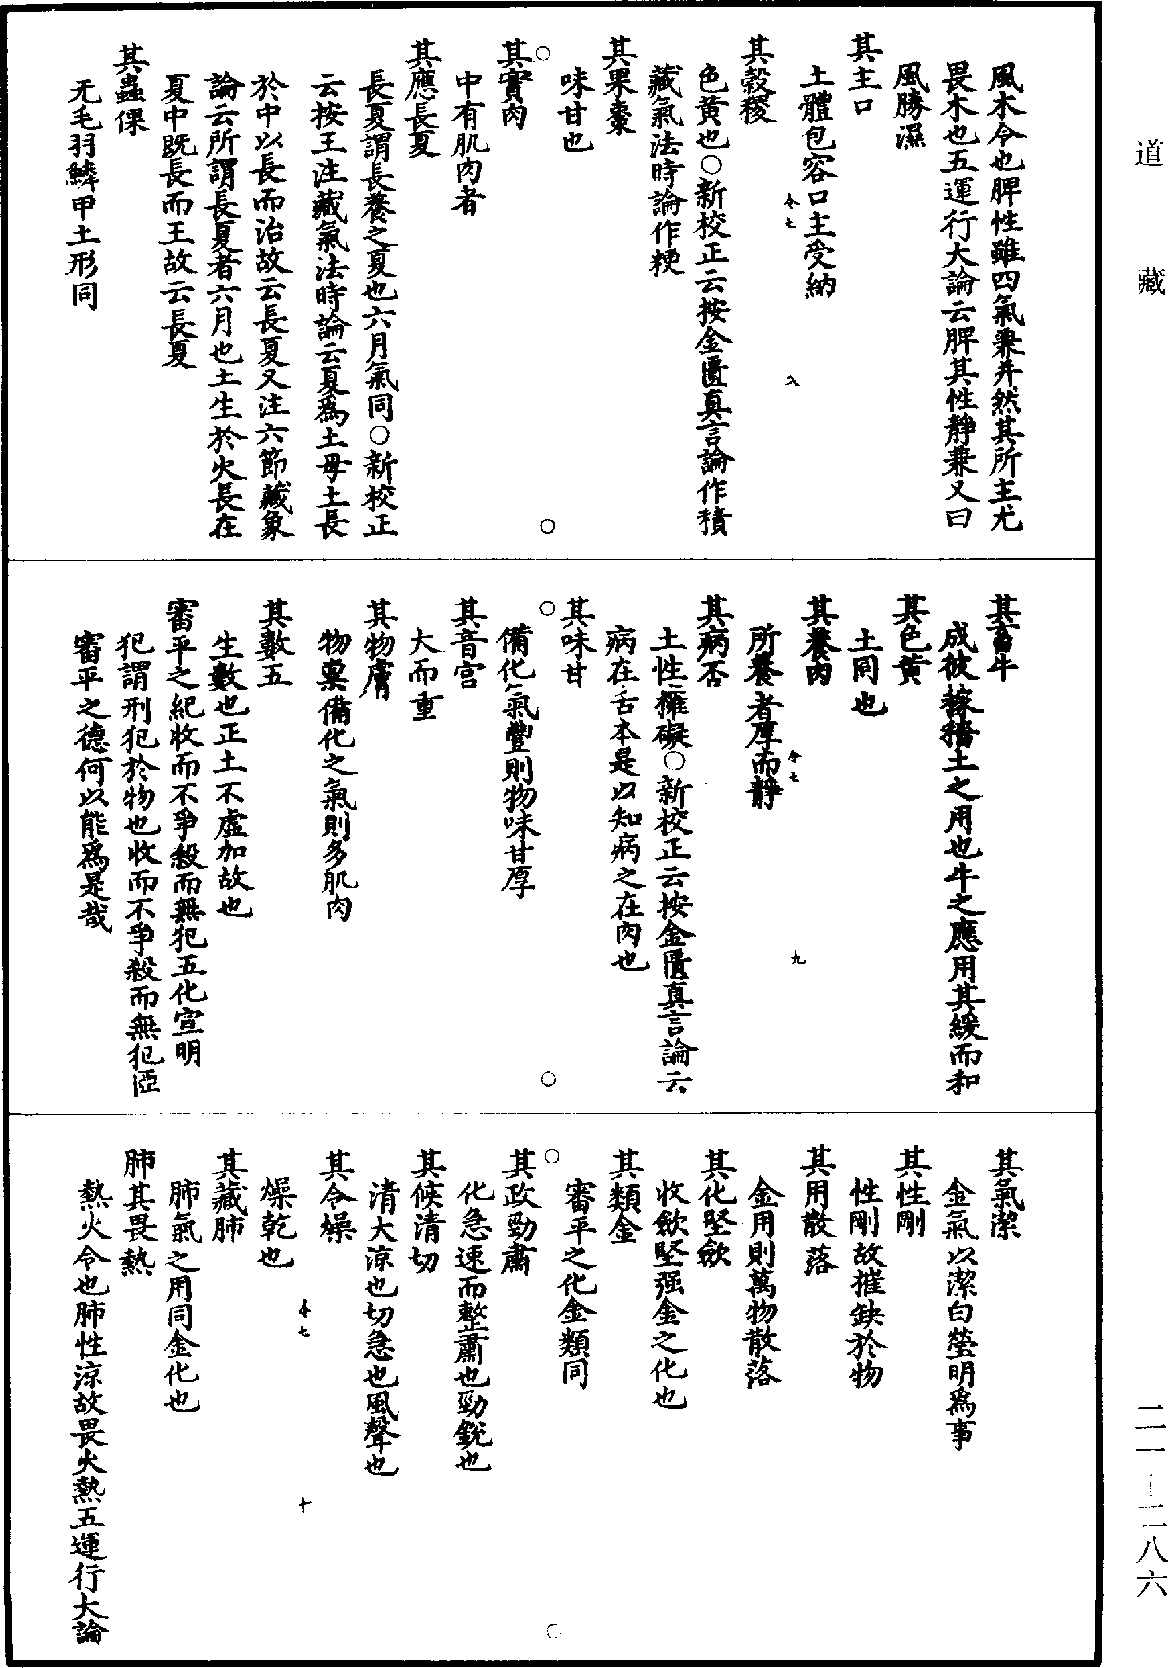 道藏
風木令也脾性雖四氣兼并然其所主尤
畏木也五運行大論云脾其性靜兼又曰
風勝濕
其主口
土體包容口主受納
令七
八
其穀稷
色黃也○新校正云按金匱真言論作稷
藏氣法時論作粳
其果棗
味甘也
其實肉
中有肌肉者
其應長夏
長夏謂長養之夏也六月氣同○新校正
云按王注藏氣法時論云夏爲土母土長
於中以長而治故云長夏又注六節藏象
論云所謂長夏者六月也土生於火長在
夏中既長而王故云長夏
其蟲倮
无毛羽鱗甲土形同
其畜牛
成彼稼穡土之用也牛之應用其緩而和
其色黃
土同也
其養肉
所養者厚而靜
令七
九
其病否
土性擁礙○新校正云按金匱真言論云
病在舌本是以知病之在肉也
其味甘
備化氣豐則物味甘厚
其音宫
大而重
其物膚
物稟備化之氣則多肌肉
其數五
生數也正土不虛加故也
審平之紀收而不爭殺而無犯五化宣明
犯謂刑犯於物也收而不爭殺而無犯匪
審平之德何以能爲是哉
其氣潔
金氣以潔白瑩明爲事
其性剛
性剛故摧缺於物
其用散落
金用則萬物散落
其化堅斂
收斂堅强金之化也
其類金
審平之化金類同
其政勁肅
化急速而整肅也勁銳也
其候清切
清大涼也切急也風聲也
其令燥
令七
十
燥乾也
其藏肺
肺氣之用同金化也
肺其畏熱
熱火令也肺性涼故畏火熱五運行大論
二一—二八六